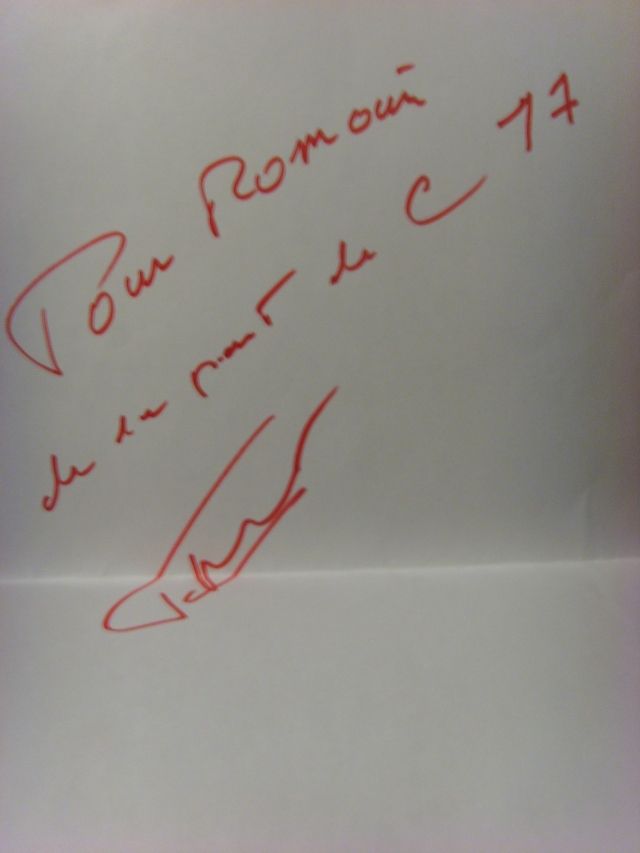 Pour Romain
de la part de C 17